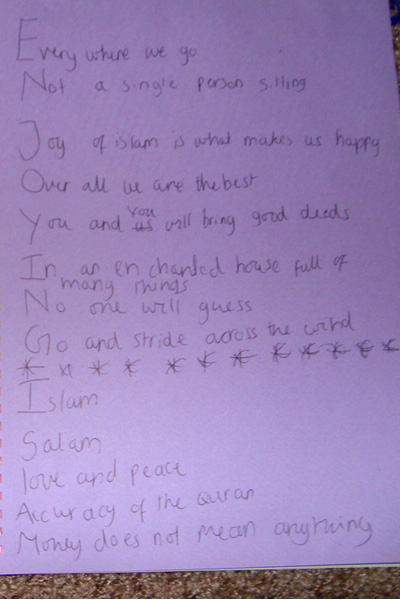 Every where we go
Not a single person sitting
Joy of islam is what makes us happy
Over all we are the best
You and you will bring good deeds
In an en chanted house full of
many things
No one will guess
Go and stride across the wind
Islam
Salam
love and peace
Accuracy of the Quran
Money does not mean anything